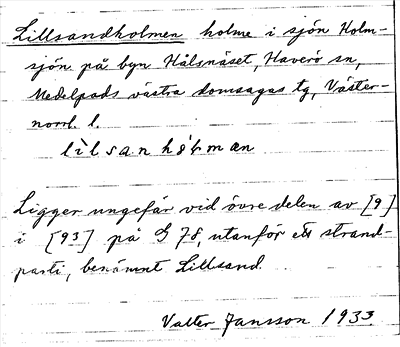 Lillsandholmen holme i sjön Holm-
sjön på byn Hålsnäset, Haverö sn,
Medelpads västra domsagas tg, Väster-
norrl. l.
lìlsanhólman
Ligger ungefär vid övre delen av [9]
i [93] på G 78, utanför ett strand-
parti, benämnt Lillsand.
Valter Jansson 1933